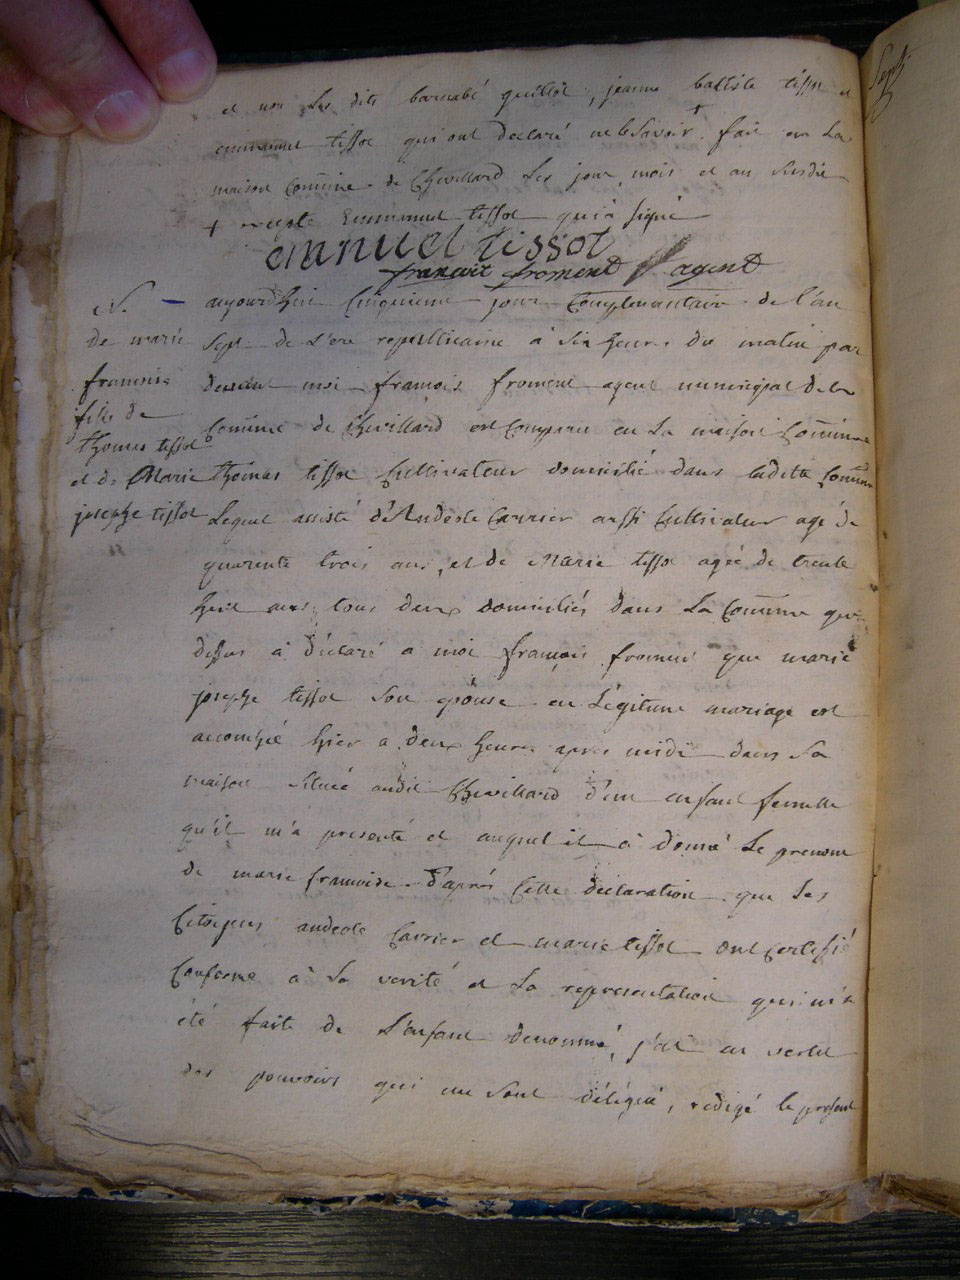 et non les dits barnabé guillot, jeanne battiste tissot et
emmanuel tissot qui ont declaré ne le savoir + fait en La
maison Commune de Chevillard Les jour mois et an susdit
+ excepté Emmanuel tissot qui a signé
emnuel tissot
francoit froment agent
N. – aujourd'hui Cinquieme jour Complementaire de l'an
de marie Sept de L'ere republicaine à Six heures du matin par
francoise devant moi francois froment agent municipal de la
fille de Commune de Chevillard est Comparu en La maison Commune
thomas tissot
et de Marie thomas tissot Cultivateur domicilié dans ladite Commune
josephe tissot Lequel assisté d'Andeole Carrier aussi Cultivateur agé de
quarente trois ans, et de Marie tissot agée de trente
huit ans, tous deux domiciliés dans La Commune que
dessus à déclaré a moi françois froment que marie
josephe tissot son epouse en Légitime mariage est
accouchée hier a deux heures apres midi dans Sa
maison situeé audit Chevillard d'un enfant femelle
qu'il m'a presenté et auquel il à donné Le prenom
de marie francoise d'après Cette déclaration que Les
Citoyens andeole Carrier et marie tissot ont Certifié
Conforme à La verité et La representation qui m'a
été faite de L'enfant denommé, j'ai en vertu
des pouvoirs qui me sont délégué, redigé le present
Sept